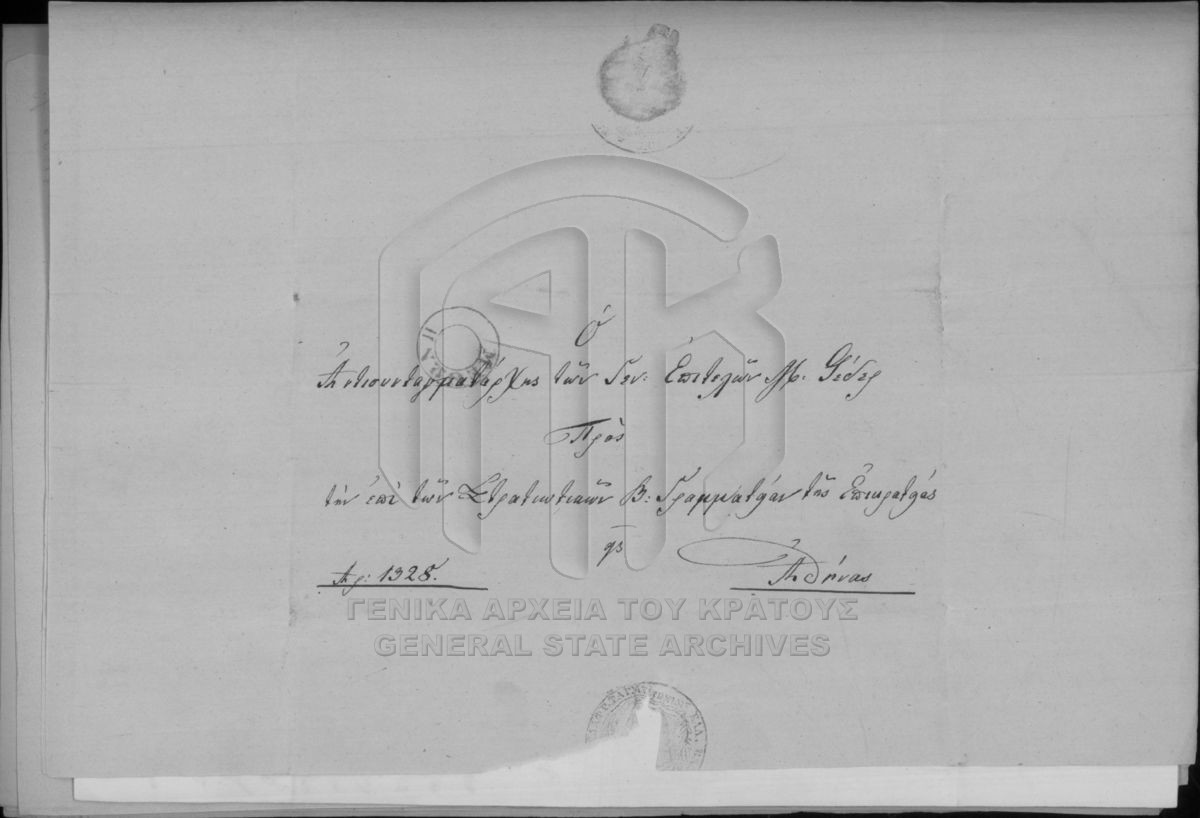 Ὁ
Ἀντισυνταγματάρχης τῶν Γεν: Ἐπιτελῶν Μ. Γέδερ
Πρὸς
τὴν ἐπὶ τῶν Στρατιωτικῶν Β: Γραμματείαν τῆς Ἐπικρατείας
Ἀρ: 1328.
Ἀθήνας
ΓΕΝΙΚΑ ΑΡΧΕΙΑ ΤΟΥ ΚΡΑΤΟΥΣ
GENERAL STATE ARCHIVES